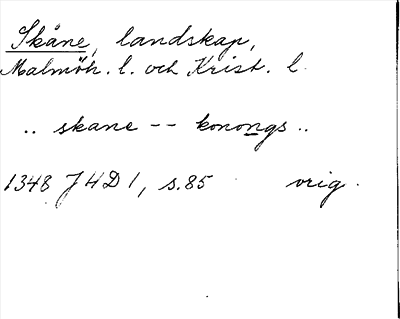 Skåne, landskap,
Malmöh. l. och Krist. l.
.. skane -- konongs ..
1348 JHD 1, s. 85 orig.